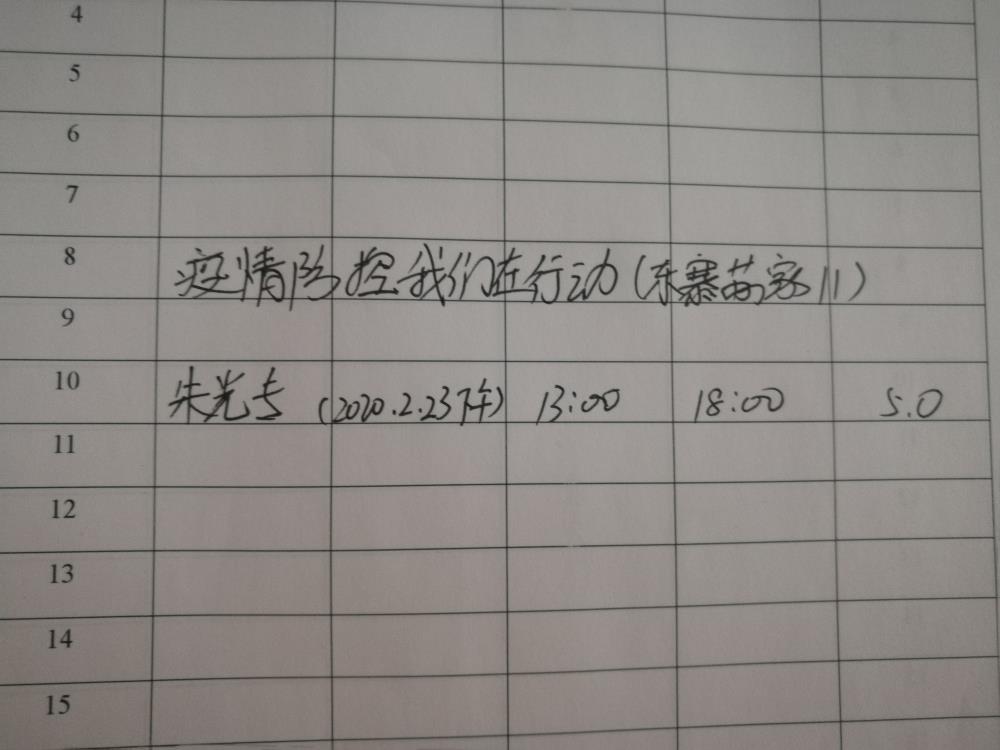 4
5
6
7
8 疫情防控我们在行动(东寨苏家川)
9
10 朱光专 (2020.2.23下午) 13:00 18:00 5.0
11
12
13
14
15